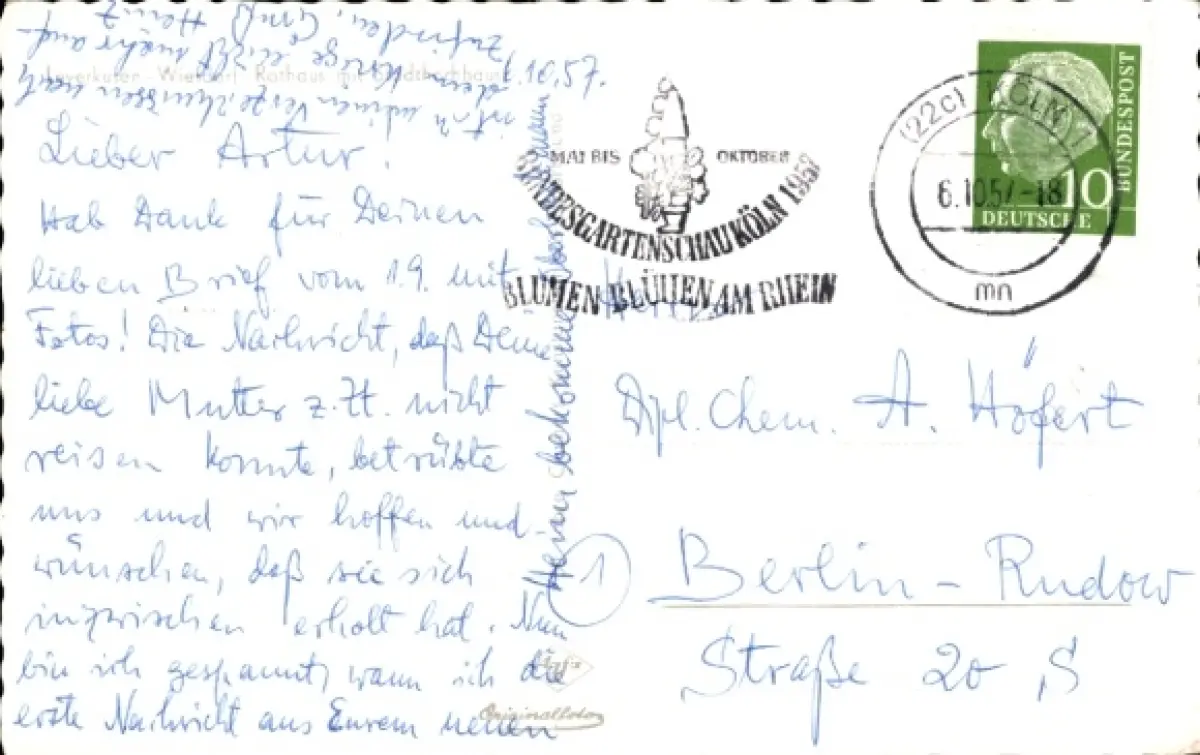 6.10.57.
Lieber Artur!
Hab Dank für Deinen
lieben Brief vom 1.9. mit
Fotos! Die Nachricht, daß Deine
liebe Mutter z. Zt. nicht
reisen konnte, betrübte
uns und wir hoffen und
wünschen, daß sie sich
inzwischen erholt hat. Nun
bin ich gespannt, wann ich die
erste Nachricht aus Eurem neuen
Heim bekomme.
ist in meinen Verzeichnissen nach
dem Kriege nicht mehr auf-
zufinden, Gruß Heinz
Leverkusen - Wiesdorf - Rathaus mit Stadthochhaus
Originalfoto
MAI BIS OKTOBER
BUNDESGARTENSCHAU KÖLN 1957
BLUMEN BLÜHEN AM RHEIN
(22c) KÖLN 1
6.10.57.-18
mn
10
DEUTSCHE
BUNDESPOST
Herrn
Dipl. Chem. A. Höfert
1 Berlin - Rudow
Straße 20, 8